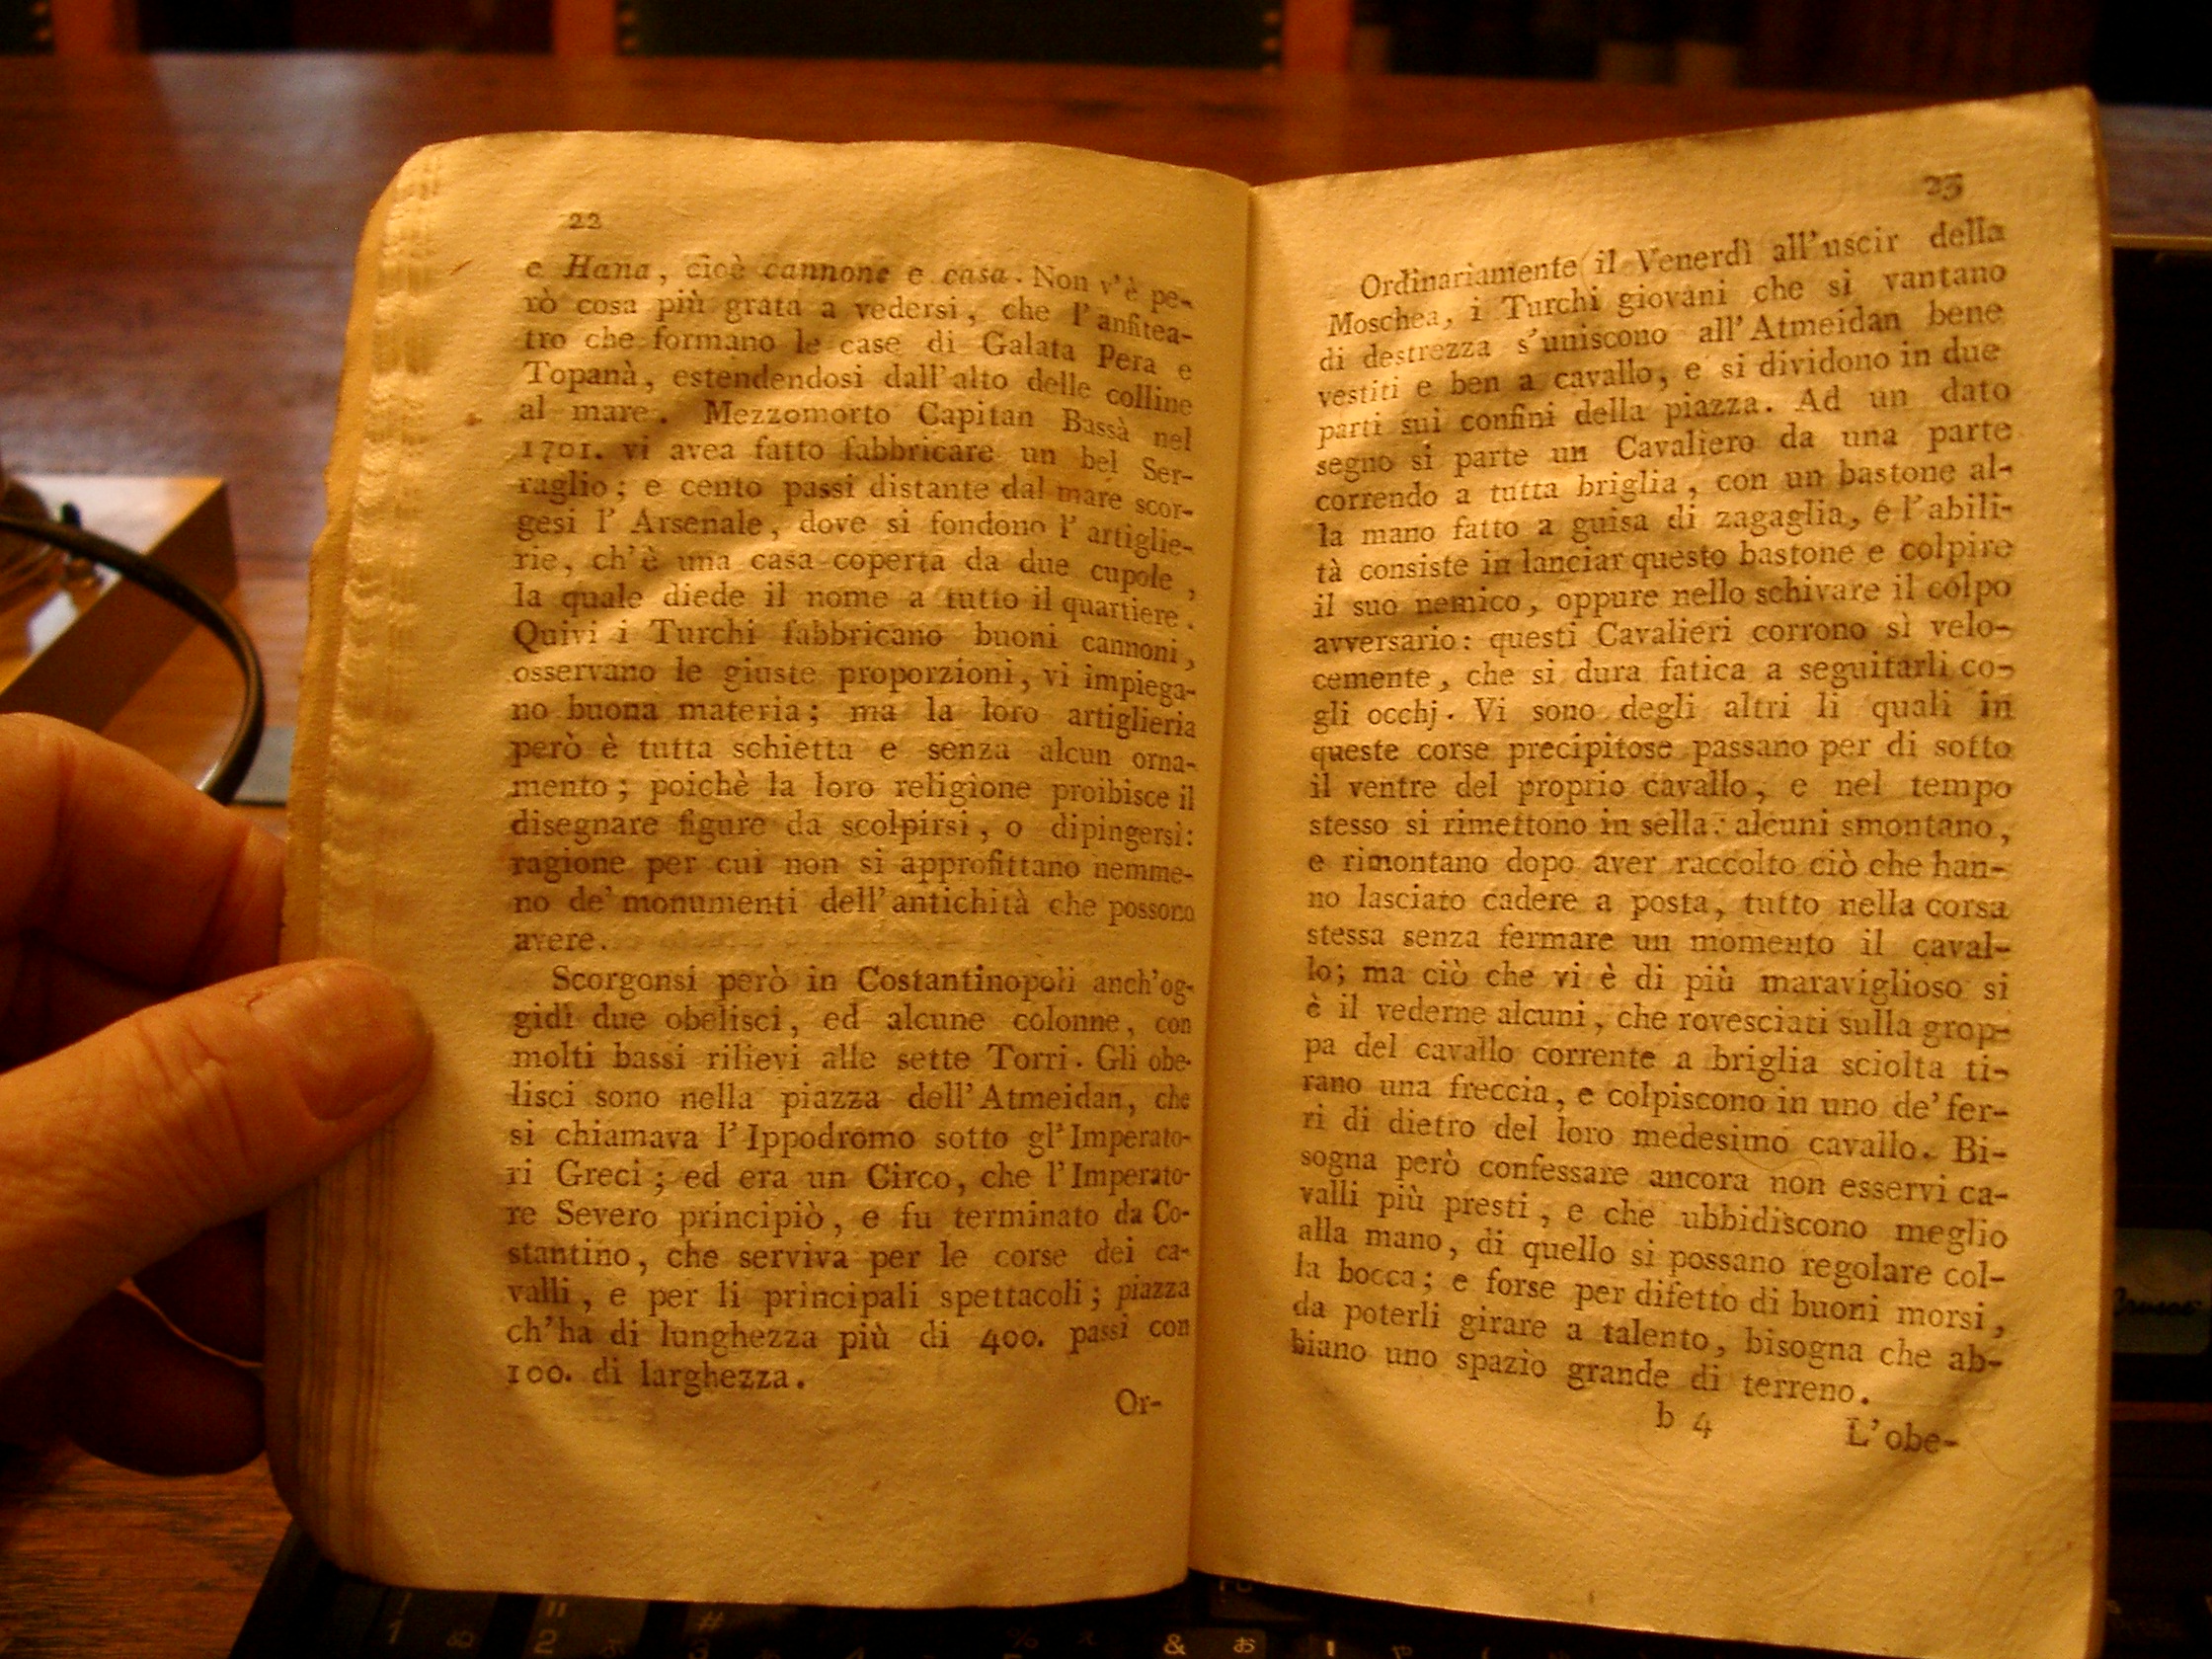 22
e Hana, cioè cannone e casa. Non v'è pe-
rò cosa più grata a vedersi, che l'anfitea-
tro che formano le case di Galata Pera e
Topanà, estendendosi dall'alto delle colline
al mare. Mezzomorto Capitan Bassà nel
1701. vi avea fatto fabbricare un bel Ser-
raglio; e cento passi distante dal mare scor-
gesi l'Arsenale, dove si fondono l'artiglie-
rie, ch'è una casa coperta da due cupole,
la quale diede il nome a tutto il quartiere.
Quivi i Turchi fabbricano buoni cannoni,
osservano le giuste proporzioni, vi impiega-
no buona materia; ma la loro artiglieria
però è tutta schietta e senza alcun orna-
mento; poichè la loro religione proibisce il
disegnare figure da scolpirsi, o dipingersi:
ragione per cui non si approfittano nemme-
no de' monumenti dell'antichità che possono
avere.
Scorgonsi però in Costantinopoli anch'og-
gidì due obelisci, ed alcune colonne, con
molti bassi rilievi alle sette Torri. Gli obe-
lisci sono nella piazza dell'Atmeidan, che
si chiamava l'Ippodromo sotto gl'Imperato-
ri Greci; ed era un Circo, che l'Imperato-
re Severo principiò, e fu terminato da Co-
stantino, che serviva per le corse dei ca-
valli, e per li principali spettacoli; piazza
ch'ha di lunghezza più di 400. passi con
100. di larghezza.
Or-
23
Ordinariamente il Venerdì all'uscir della
Moschea, i Turchi giovani che si vantano
di destrezza s'uniscono all'Atmeidan bene
vestiti e ben a cavallo, e si dividono in due
parti sui confini della piazza. Ad un dato
segno si parte un Cavaliero da una parte
correndo a tutta briglia, con un bastone al-
la mano fatto a guisa di zagaglia, e l'abili-
tà consiste in lanciar questo bastone e colpire
il suo nemico, oppure nello schivare il colpo
avversario: questi Cavalieri corrono sì velo-
cemente, che si dura fatica a seguitarli co-
gli occhj. Vi sono degli altri li quali in
queste corse precipitose passano per di sotto
il ventre del proprio cavallo, e nel tempo
stesso si rimettono in sella: alcuni smontano,
e rimontano dopo aver raccolto ciò che han-
no lasciato cadere a posta, tutto nella corsa
stessa senza fermare un momento il caval-
lo; ma ciò che vi è di più maraviglioso si
è il vederne alcuni, che rovesciati sulla grop-
pa del cavallo corrente a briglia sciolta ti-
rano una freccia, e colpiscono in uno de' fer-
ri di dietro del loro medesimo cavallo. Bi-
sogna però confessare ancora non esservi ca-
valli più presti, e che ubbidiscono meglio
alla mano, di quello si possano regolare col-
la bocca; e forse per difetto di buoni morsi,
da poterli girare a talento, bisogna che ab-
biano uno spazio grande di terreno.
b 4
L'obe-